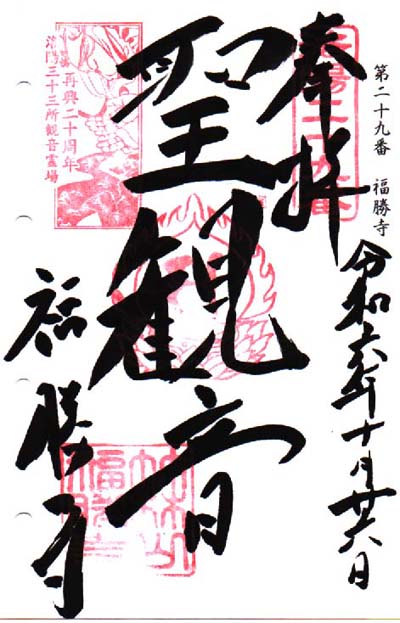 第二十九番 福勝寺
奉拝
洛陽二十九番
令和六年十月廿六日
聖観音
福勝寺
再興二十周年
洛陽三十三所観音霊場